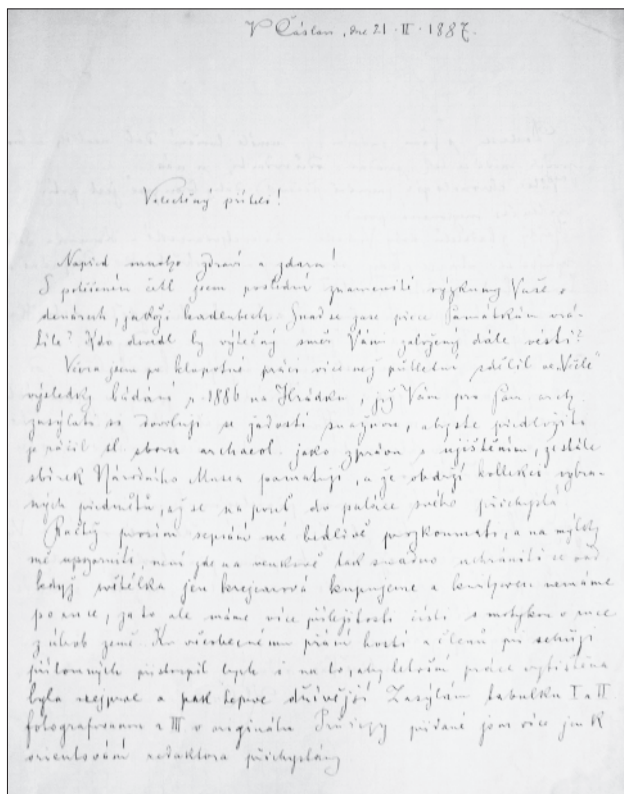 V Čáslavi, dne 21 · II · 1887.
Velectěný příteli!
Napřed mnoho zdraví a zdaru!
S potěšením četl jsem poslední znamenité výzkumy Vaše o
denárech, jakož i Snad se zase Památkám
Kdo dovedl by výtečný směr Vámi založený dále vésti?
Včera jsem po klopotné práci více než půlletní sdělil ve „Včele“
výsledky bádání r. 1886 na Hrádku, jež Vám pro Pam. arch.
zasýlati si dovoluji se žádostí snažnou, abyste předložiti
je ráčil sl. sboru archaeol. jako zprávu s ujištěním, že stále
sbírek Národního Musea pamatuji, a že obdrží kollekci vybra-
ných předmětů, až se na pouť do paláce svého přichystá.
Račtež prosím sepsání mé bedlivě prozkoumati, a na mýlky
mě upozorniti, není zde na venkově tak snadno uchrániti se vad
když světélka jen krejcarová kupujeme a knihoven nemáme
po ruce, za to ale máme více příležitosti čísti s motykou v ruce
z úhob země. Ku všeobecnému přání hostí a členů při schůzi
přítomných přistoupil bych i na to, aby letošní práce vytištěna
byla nejprve a pak teprve dřívější. Zasýlám tabulku I a II
fotografovanou a III v originálu. Průřezy přidané jsou více jen k
orientování redaktora přichystány